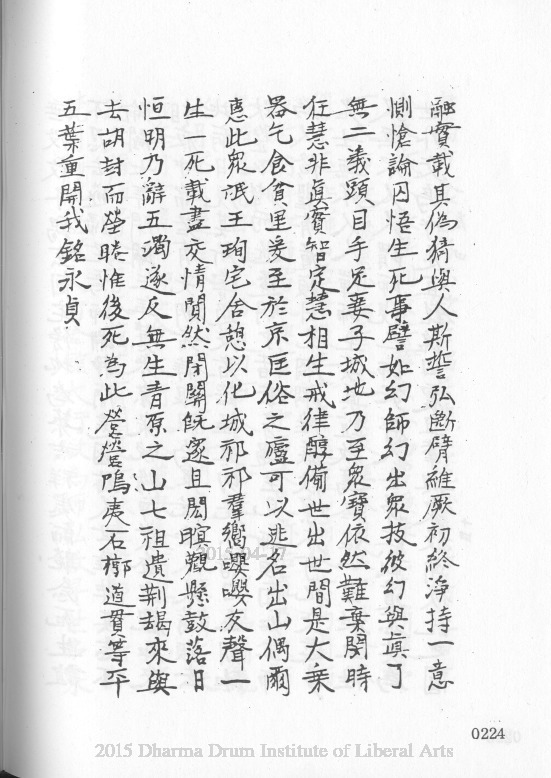 融實載其偽猗與人斯誓弘斷臂維厥初終淨持一意
惻愴論因悟生死事譬如幻師幻出眾技彼幻與真了
無二義頭目手足妻子城地乃至眾寶依然難棄閱時
狂慧非真實智定慧相生戒律醇備世出世間是大乘
器乞食貧里爰至於京匡俗之廬可以逃名出山偶爾
惠此眾氓王珣宅舍憩以化城祁祁羣嚮嚶嚶友聲一
生死載盡交情閴然閉關旣邃且閎暗觀懸鼓落日
恒明乃辭五濁遂反無生青原之山七祖遺荊朅來與
去胡封而塋睠惟後死為此營營嗚夷石槨道貫等平
五葉重開我銘永貞
0224
2015-04-17
2015 Dharma Drum Institute of Liberal Arts